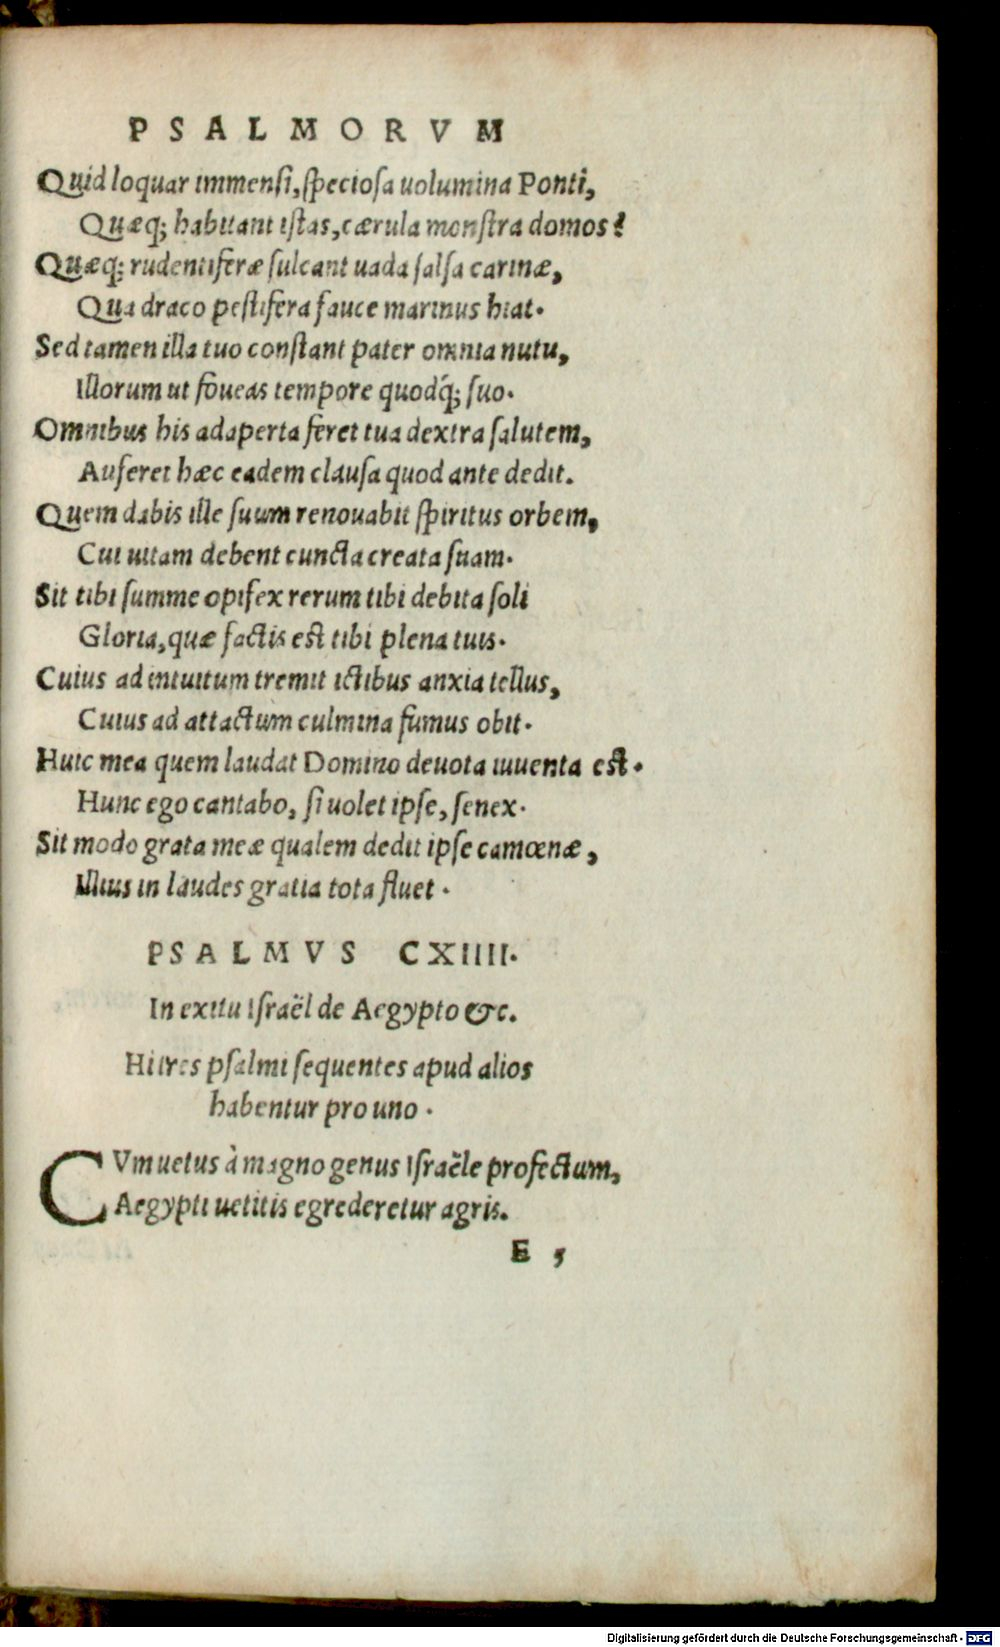 PSALMORVM
Quid loquar immensi, speciosa uolumina Ponti,
Quæq; habitant istas, cærula monstra domos?
Quæq; rudentiferæ sulcant uada salsa carinæ,
Qua draco pestifera fauce marinus hiat.
Sed tamen illa tuo constant pater omnia nutu,
Illorum ut foueas tempore quodq́; suo.
Omnibus his adaperta feret tua dextra salutem,
Auferet hæc eadem clausa quod ante dedit.
Quem dabis ille suum renouabit spiritus orbem,
Cui uitam debent cuncta creata suam.
Sit tibi summe opifex rerum tibi debita soli
Gloria, quæ factis est tibi plena tuis.
Cuius ad intuitum tremit ictibus anxia tellus,
Cuius ad attactum culmina fumus obit.
Huic mea quem laudat Domino deuota iuuenta est.
Hunc ego cantabo, si uolet ipse, senex.
Sit modo grata meæ qualem dedit ipse camœnæ,
Illius in laudes gratia tota fluet.
PSALMVS CXIIII.
In exitu Israël de Aegypto &c.
Hi tres psalmi sequentes apud alios
habentur pro uno.
CVm uetus à magno genus Israële profectum,
Aegypti uetitis egrederetur agris.
E 5
Digitalisierung gefördert durch die Deutsche Forschungsgemeinschaft - DFG